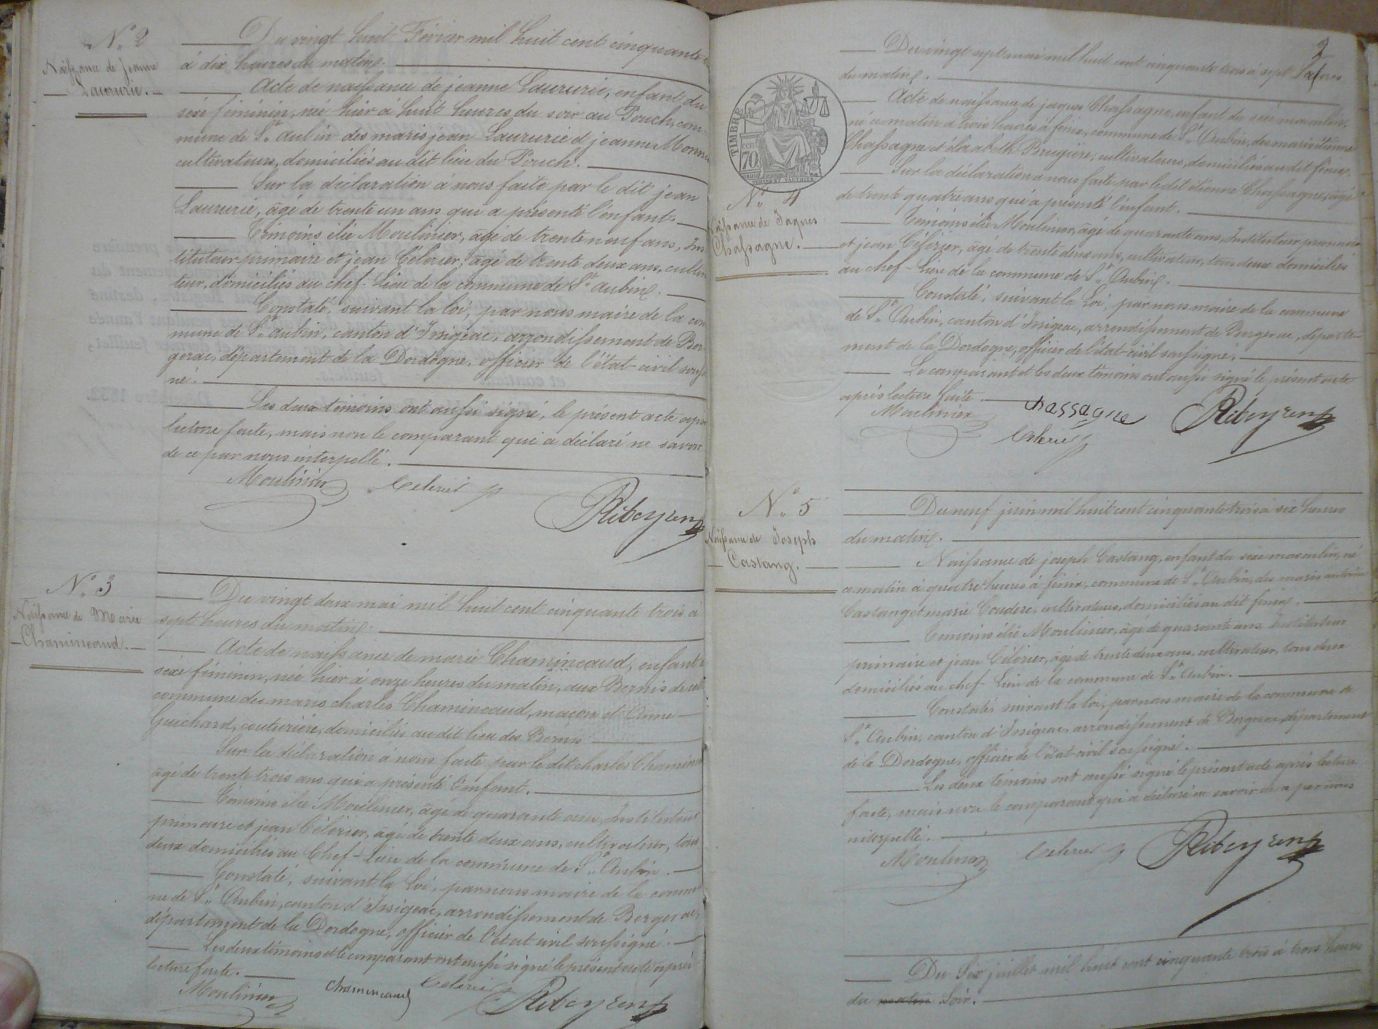 N.° 2
Naissance de Jeanne
Laururie.
Du vingt huit Février mil huit cent cinquante
à dix heures du matin.
Acte de naissance de jeanne Laururie, enfant du
sexe féminin, né hier à huit heures du soir au Pouch, com-
mune de S.t Aubin des maries jean Laururie et jeanne
cultivateurs, domiciliés au dit lieu du Pouch.
Sur la déclaration à nous faite par le dit jean
Laururie, âgé de trente un ans qui a présenté l'enfant.
Témoins élie Moulinier, âgé de trente neuf ans, Ins-
tituteur primaire et jean Célerier, âgé de trente deux ans, cultiva-
teur, domiciliés au chef-lieu de la commune de S.t aubin.
Constaté, suivant la loi, par nous maire de la com-
mune de S.t aubin, canton d'Issigeac, arrondissement de Ber-
gerac, département de la Dordogne, officier de l'état-civil soussi-
né.
Les deux témoins ont aussi signé, le présent acte après
lecture faite, mais non le comparant qui a déclaré ne savoir
de ce par nous interpellé.
Moulinier Celerier Ribeyren
N.° 3
Naissance de Marie
Chamineaud.
Du vingt deux mai mil huit cent cinquante trois à
sept heures du matin.
Acte de naissance de marie Chamineaud, enfant
sexe féminin, née hier à onze heures du matin, aux Bernis
commune des maries charles Chamineaud, maçon et Anne
Guichard, couturière, domiciliés au dit lieu des Bernis
Sur la déclaration à nous faite par le dit charles Chamineaud
âgé de trente trois ans qui a présenté l'enfant.
Témoins élie Moulinier, âgé de quarante ans, Instituteur
primaire et jean Célerier, âgé de trente deux ans, cultivateur, tous
deux domiciliés au Chef-Lieu de la commune de S.t Aubin.
Constaté, suivant la Loi, par nous maire de la commu-
ne de S.t Aubin, canton d'Issigeac, arrondissement de Bergerac,
département de la Dordogne, officier de l'état civil soussigné.
Les deux témoins et le comparant ont aussi signé le présent acte après
lecture faite.
Moulinier chamineaud Celerier Ribeyren
3
TIMBRE
70
N.° 4
Naissance de Jaques
Chassagne.
Du vingt sept mai mil huit cent cinquante trois à sept heures
du matin.
Acte de naissance de jaques Chassagne, enfant du sexe masculin,
né ce matin à trois heures à feine, commune de S.t Aubin, des maries étienne
Chassagne et elisabeth Brugière, cultivateurs, domiciliés au dit feine.
Sur la déclaration à nous faite par le dit étienne Chassagne, âgé
de trente quatre ans qui a présenté l'enfant.
Témoins élie Moulinier, âgé de quarante ans, Instituteur primaire
et jean Célerier, âgé de trente deux ans, cultivateur, tous deux domiciliés
au chef-lieu de la commune de S.t Aubin.
Constaté, suivant la Loi, par nous maire de la commune
de S.t Aubin, canton d'Issigeac, arrondissement de Bergerac, départe-
ment de la Dordogne, officier de l'état-civil soussigné.
Le comparant et les deux témoins ont aussi signé le présent acte
après lecture faite.
Moulinier chassagne Celerier Ribeyren
N.° 5
Naissance de Joseph
Castang.
Du neuf juin mil huit cent cinquante trois à six heures
du matin.
Naissance de joseph Castang, enfant du sexe masculin, né
ce matin à quatre heures à feine, commune de S.t Aubin, des maries antoine
Castang et marie Couderc, cultivateurs, domiciliés au dit feine.
Témoins élie Moulinier, âgé de quarante ans Instituteur
primaire et jean Célerier, âgé de trente deux ans, cultivateur, tous deux
domiciliés au chef Lieu de la commune de S.t Aubin.
Constatés suivant la loi, par nous maire de la commune de
S.t Aubin, canton d'Issigeac, arrondissement de Bergerac, département
de la Dordogne, officier de l'état-civil soussigné.
Les deux témoins ont aussi signé le présent acte après lecture
faite, mais non le comparant qui a déclaré ne savoir de ce par nous
interpellé.
Moulinier Celerier Ribeyren
Du Six juillet mil huit cent cinquante trois à trois heures
du matin soir.